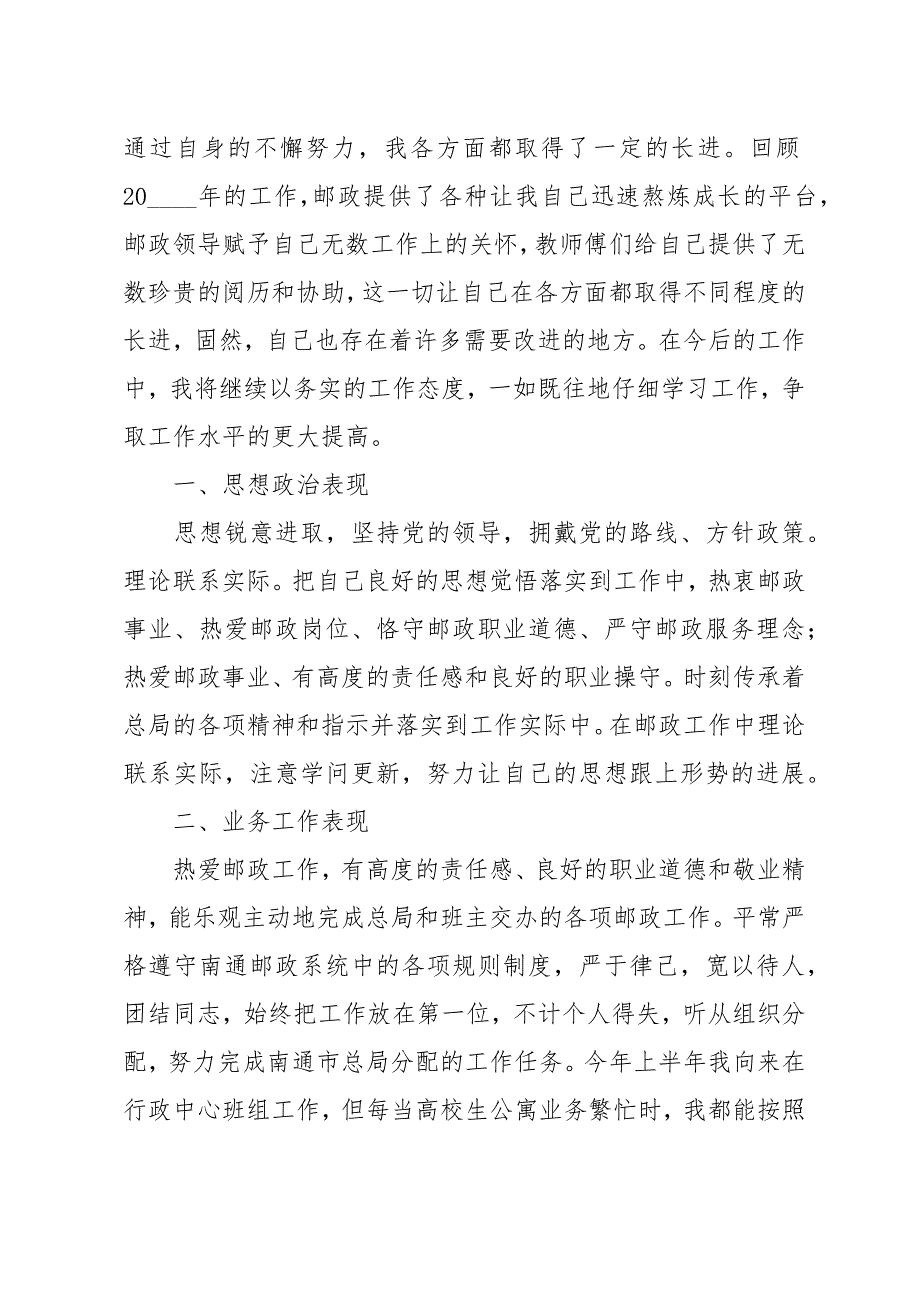 通过自身的不懈努力，我各方面都取得了一定的长进。回顾
20____年的工作，邮政提供了各种让我自己迅速熬炼成长的平台，
邮政领导赋予自己无数工作上的关怀，教师傅们给自己提供了无
数珍贵的阅历和协助，这一切让自己在各方面都取得不同程度的
长进，固然，自己也存在着许多需要改进的地方。在今后的工作
中，我将继续以务实的工作态度，一如既往地仔细学习工作，争
取工作水平的更大提高。
一、思想政治表现
思想锐意进取，坚持党的领导，拥戴党的路线、方针政策。
理论联系实际。把自己良好的思想觉悟落实到工作中，热衷邮政
事业、热爱邮政岗位、恪守邮政职业道德、严守邮政服务理念；
热爱邮政事业、有高度的责任感和良好的职业操守。时刻传承着
总局的各项精神和指示并落实到工作实际中。在邮政工作中理论
联系实际，注意学问更新，努力让自己的思想跟上形势的进展。
二、业务工作表现
热爱邮政工作，有高度的责任感、良好的职业道德和敬业精
神，能乐观主动地完成总局和班主交办的各项邮政工作。平常严
格遵守南通邮政系统中的各项规则制度，严于律己，宽以待人，
团结同志，始终把工作放在第一位，不计个人得失，听从组织分
配，努力完成南通市总局分配的工作任务。今年上半年我向来在
行政中心班组工作，但每当高校生公寓业务繁忙时，我都能按照